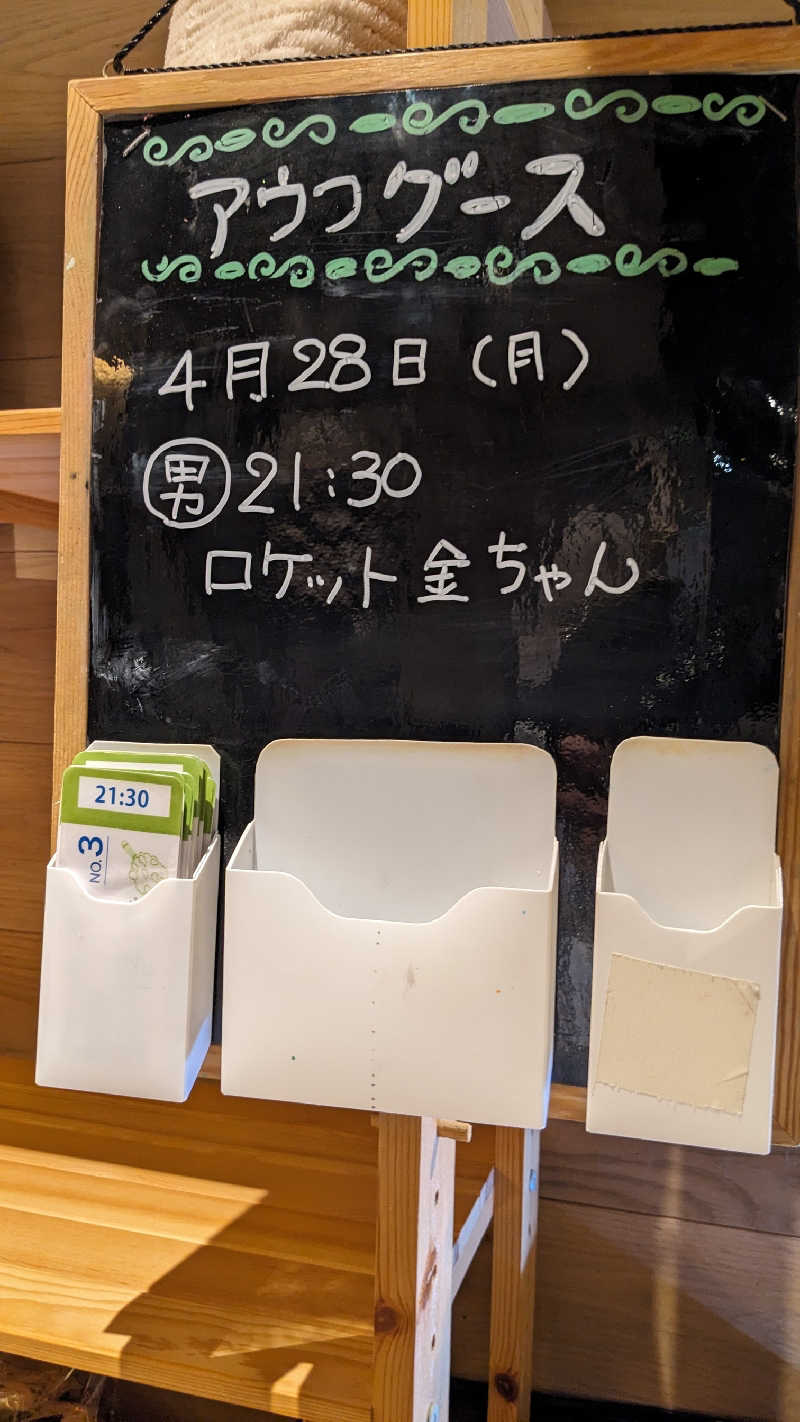 アウフグース
4月28日(月)
男 21:30
ロケット金ちゃん
21:30
NO.3